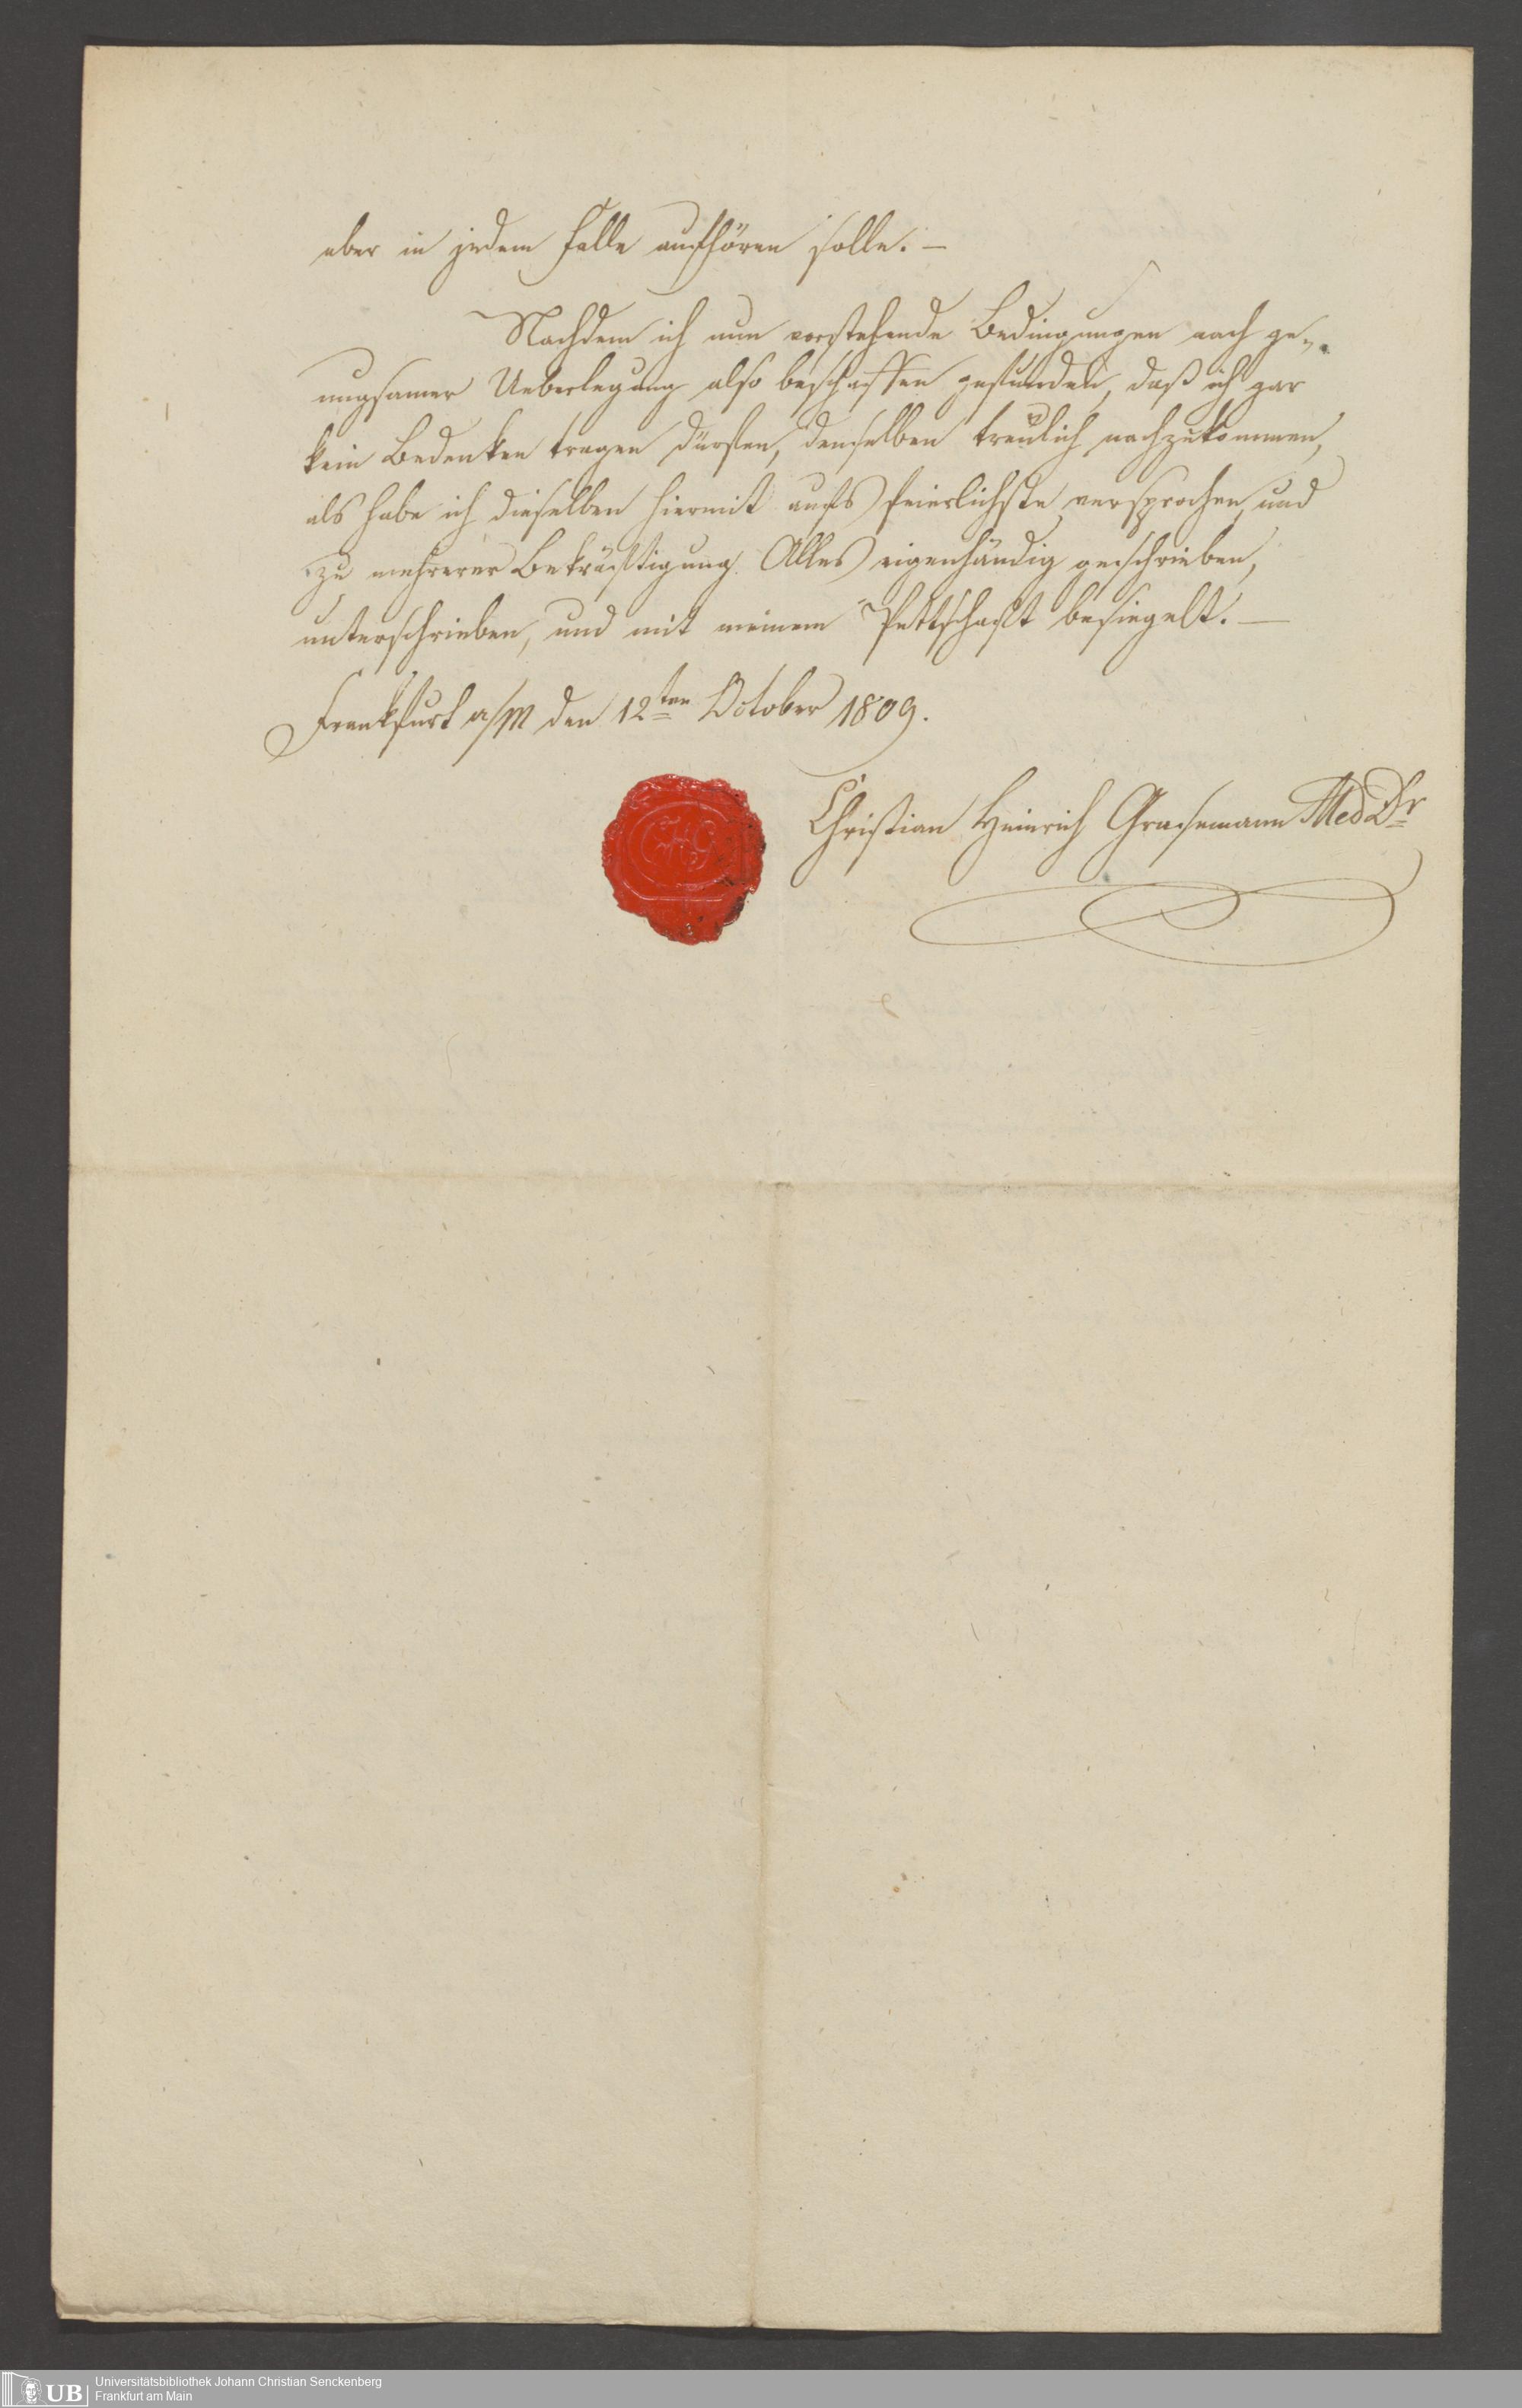 aber in jedem Falle aufhören solle. –
Nachdem ich nun vorstehende Bedingungen nach ge-
nugsamer Ueberlegung also beschaffen gefunden, daß ich gar
kein Bedenken tragen dürfen, denselben treulich nachzukommen,
als habe ich dieselben hiermit aufs feierlichste versprochen, und
zu mehrerer Bekräftigung Alles eigenhändig geschrieben,
unterschrieben, und mit meinem Pettschaft besiegelt. –
Frankfurt a/M den 12ten October 1809.
Christian Heinrich Grasemann Med Dr
CHG
UB
Universitätsbibliothek Johann Christian Senckenberg
Frankfurt am Main